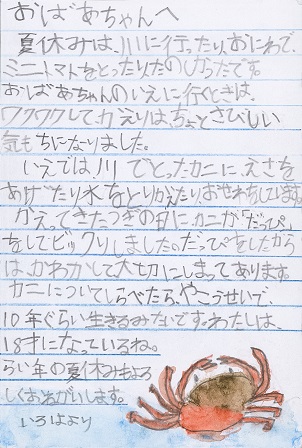 おばあちゃんへ
夏休みは、川に行ったり、おにわで、
ミニトマトをとったりたのしかったです。
おばあちゃんのいえに行くときは、
ワクワクしてカえりはちょとさびしい
気もちになりました。
いえでは川でとったカニに、えさを
あげたり水をとりかえたりおせわをしています。
かえってきたつぎの日に、カニが“だっぴ„
をしてビックリしました。だっぴをしたから
は、かわかして大切にしまってあります。
カニについてしらべたら、やこうせいで、
10年ぐらい生きるみたいです。わたしは、
18才になっているね。
らい年の夏休みもよろ
しくおねがいします。
いろはより